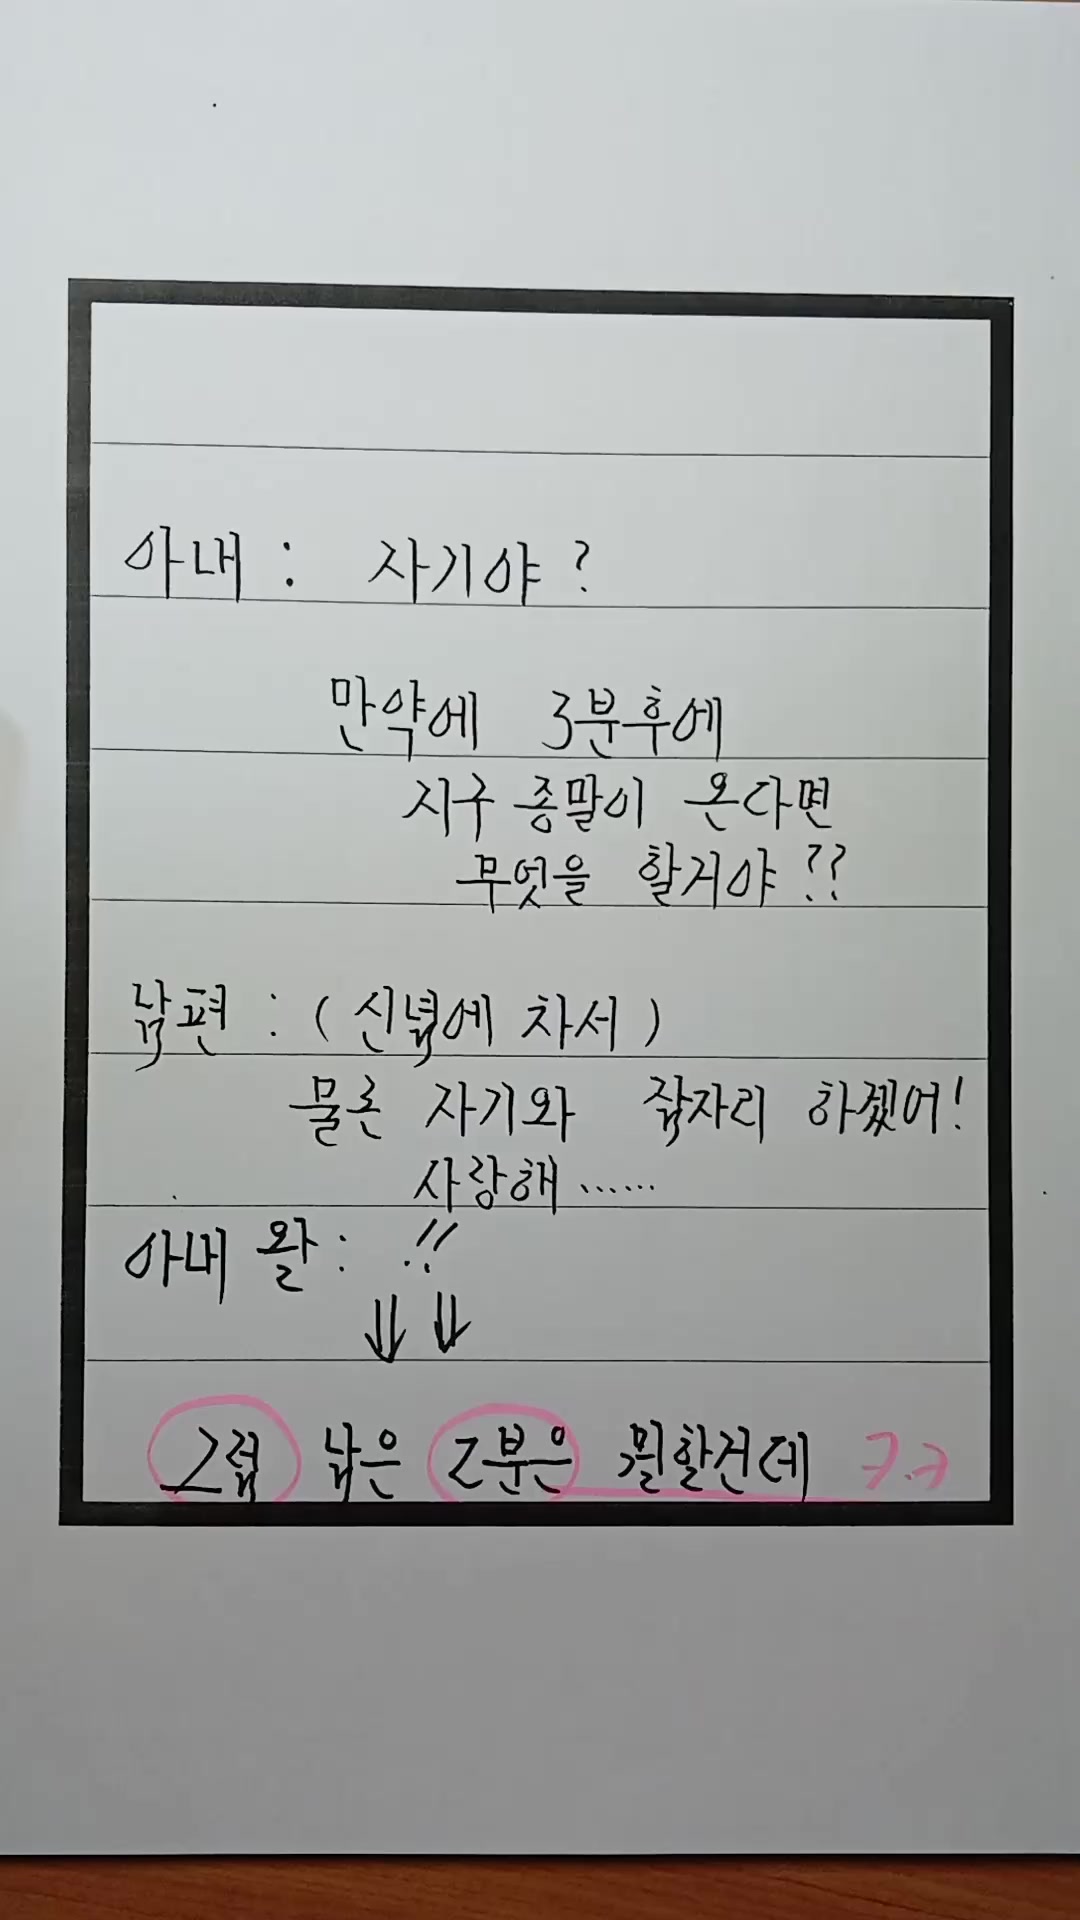 아내 : 자기야?
만약에 3분후에
지구 종말이 온다면
무엇을 할거야??
남편 : (신념에 차서)
물론 자기와 잠자리 하겠어!
사랑해......
아내 왈 : !!
⇓ ⇓
그럼 남은 2분은 뭘할건데 ㅋ.ㅋ